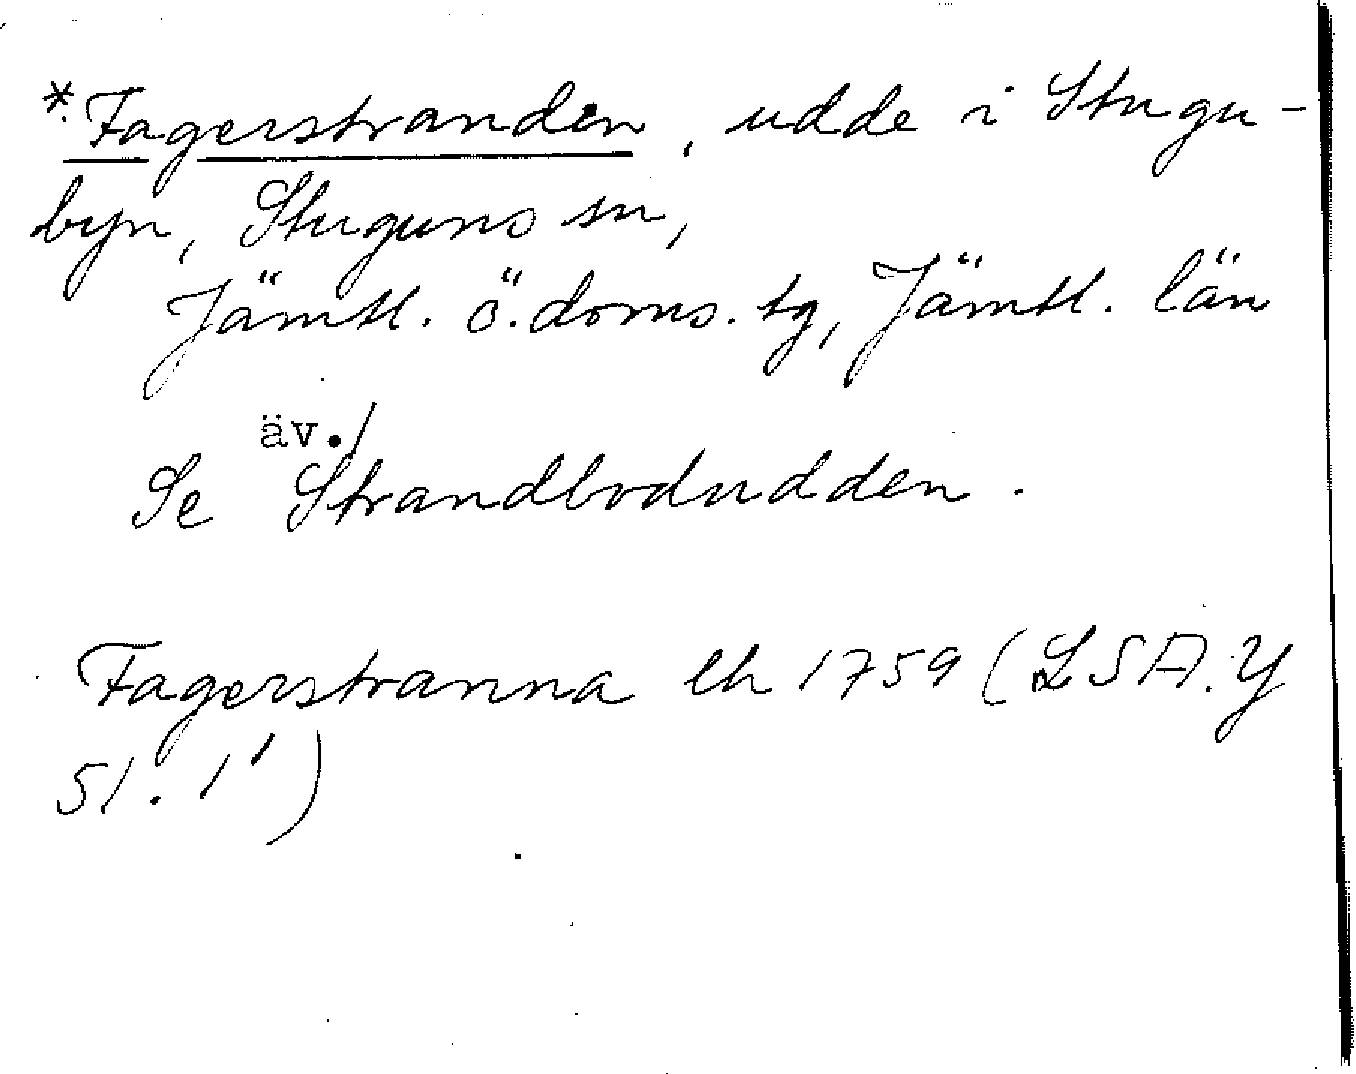 *Fagerstranden, udde i Stugu-
byn, Stuguns sn,
Jämtl. ö. doms. tg, Jämtl. län
äv./
Se Strandbodudden.
Fagerstranna lh 1759 (LSA. Y
51. 1')